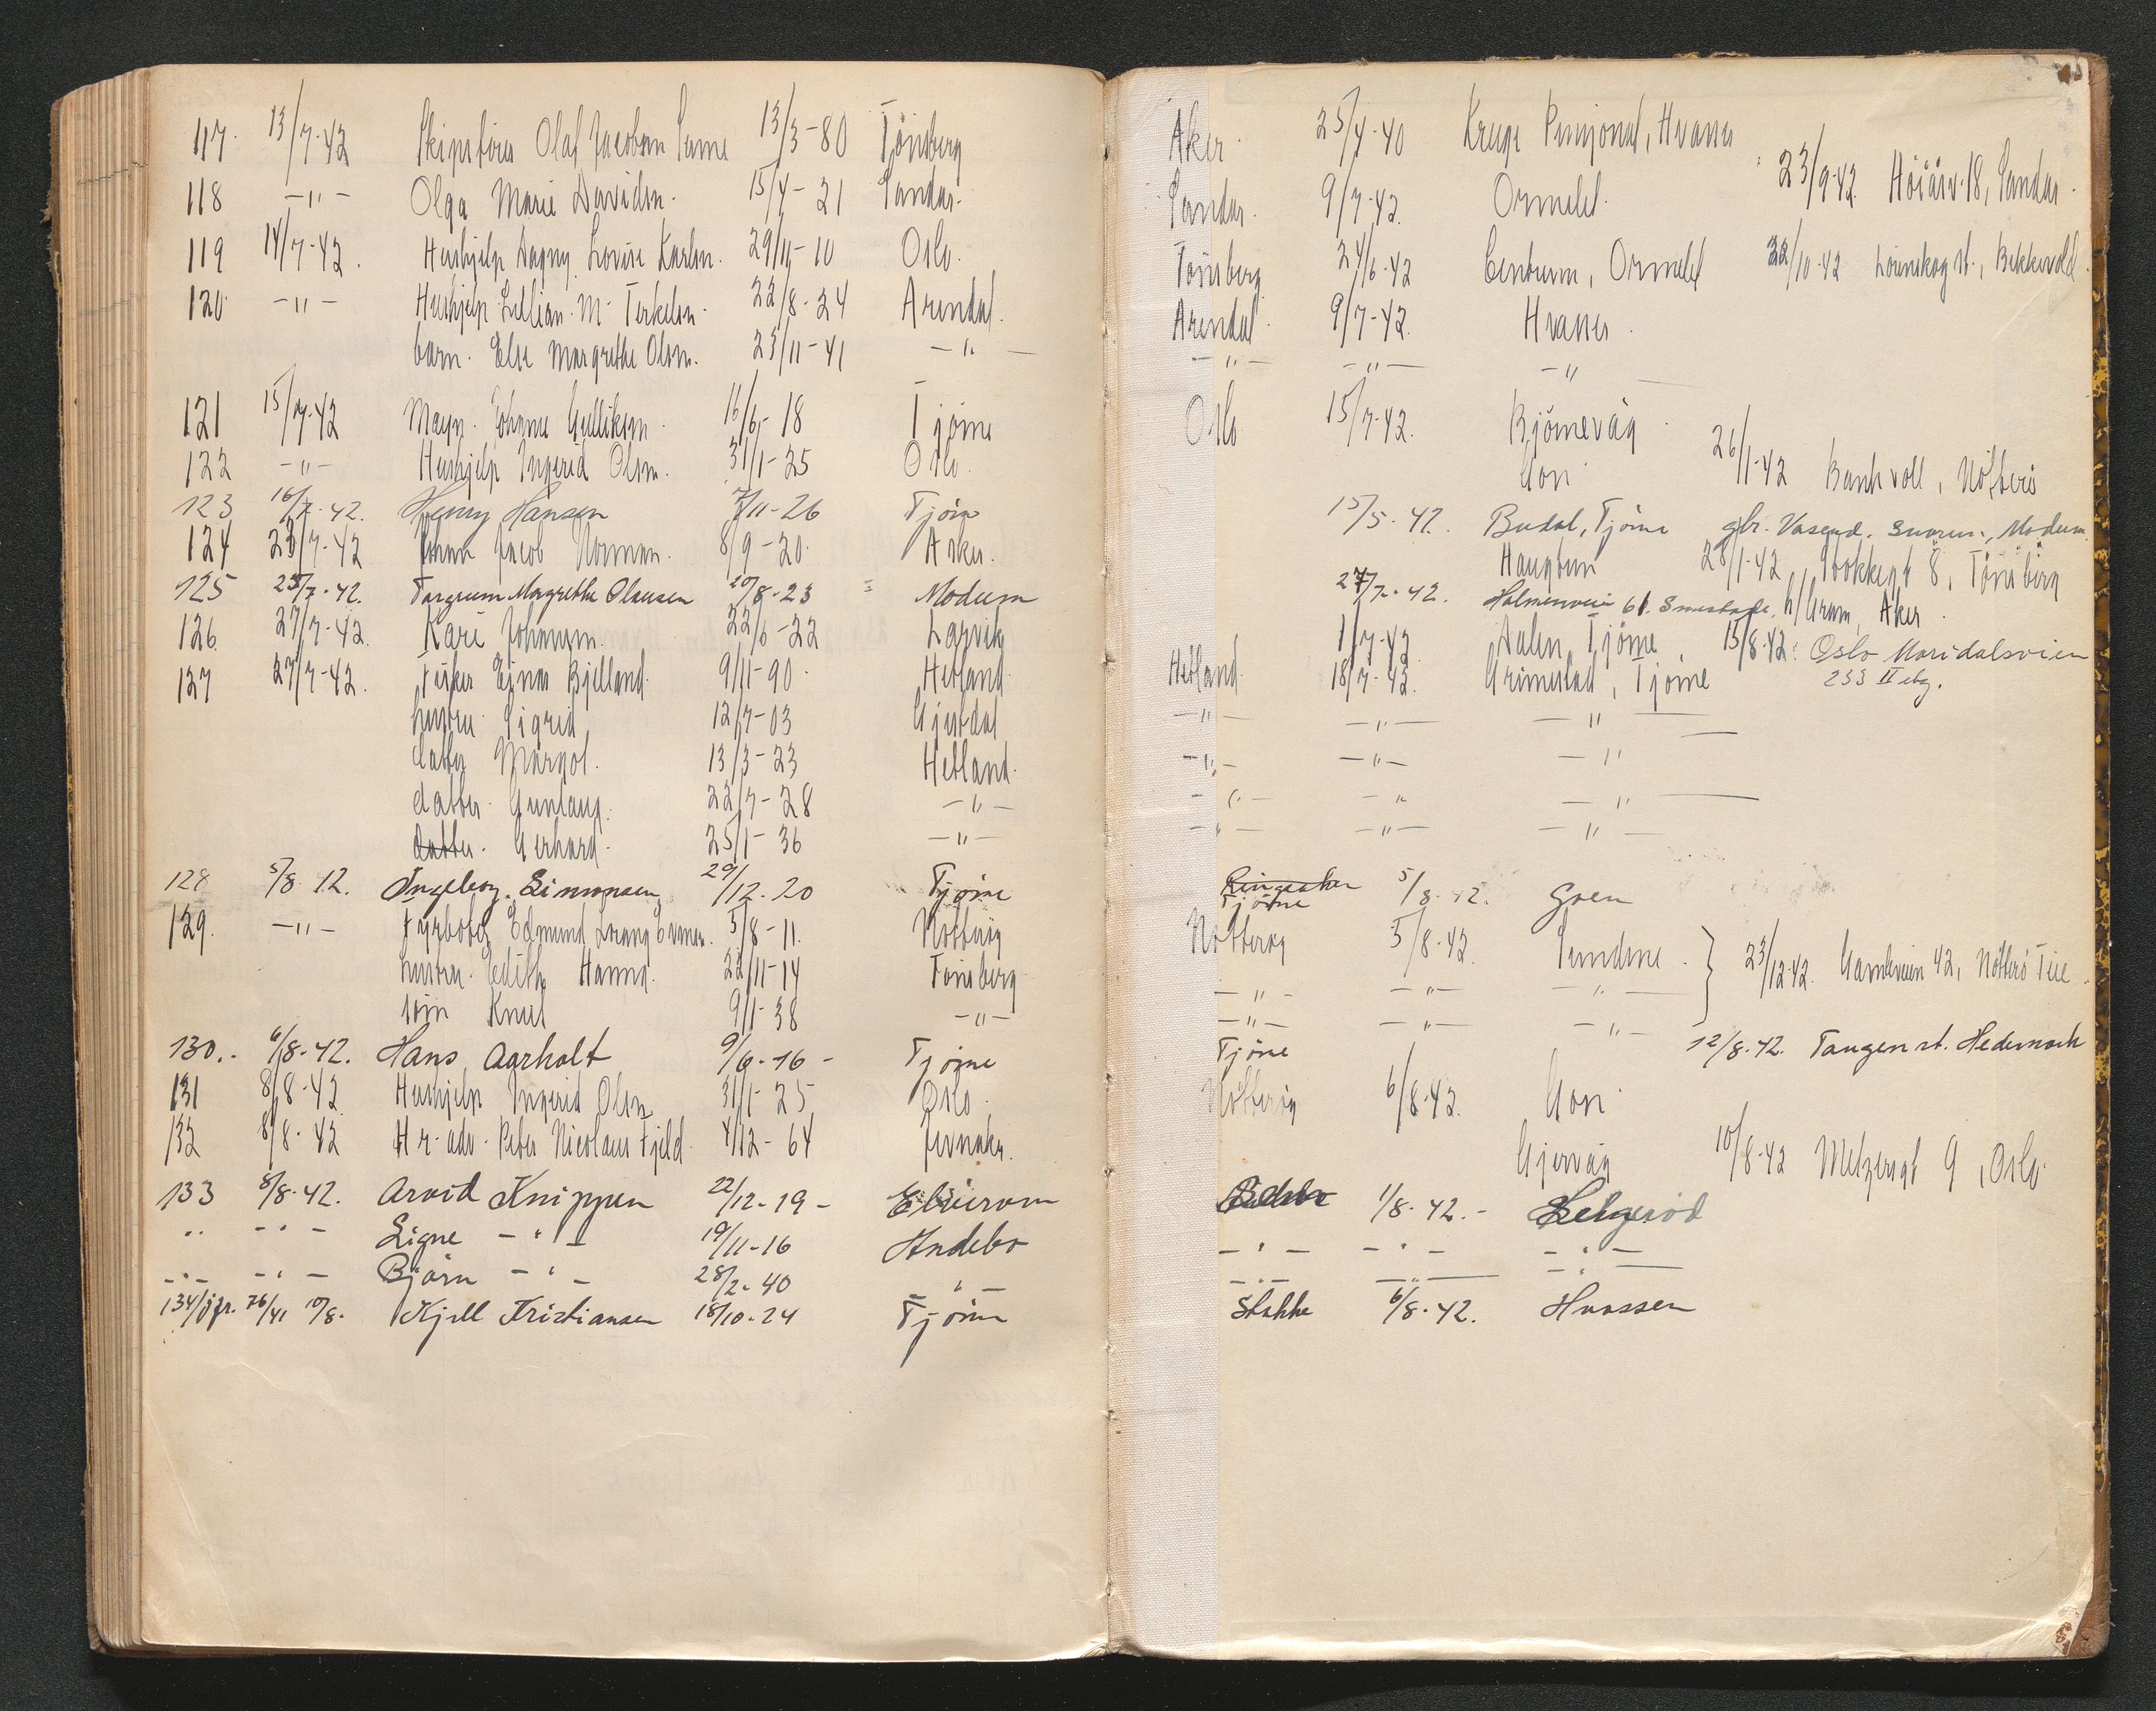 117. 13/7-42 Skipsfører Olaf Jacobsen 13/3-80 Tönsberg
118 -"- Olga Marie Davidsen. 15/4-21 Sandar.
119 14/7-42. Hushjelp Dagny Lovise Karlsen. 29/11-10 Oslo.
120 -"- Hushjelp Lillian M. Terkelsen. 22/8-24 Arendal.
barn. Else Margrethe Olsen. 23/11-41 -"-
121 15/7-42 Johanne Gulliksen. 16/6-18 Tjöme
122 -"- Hushjelp Ingerid Olsen. 31/1-25 Oslo.
123 16/7-42. Henny Hansen 7/11-26 Tjöme
124 23/7-42 Jacob Norman. 8/9-20. Asker.
125 25/7-42. Margrethe Olausen 20/8-23 = Modum
126. 27/7-42. Kari Johannesen. 22/6-22 Larvik
127 27/7-42. Fisker Ejnar Bjelland. 9/11-90. Hetland.
hustru. Sigrid 12/7-03 Gjestdal
datter Margot. 13/3-23 Hetland.
datter. Gunlaug. 22/7-28 -"-
datter. Gerhard. 25/1-36 -"-
128 5/8 42. Ingeborg Simonsen 29/12-20 Tjöme
129. -"- Fyrböter Edmund 5/8-11. Nötteröy
hustru. Edith Hanna. 22/11-14 Tönsberg
sön Knut 9/1-38 -"-
130.- 6/8-42. Hans Aarholt 9/6-16- Tjöme
131 8/8-42 Hushjelp Ingerid Olsen 31/1-25 Oslo.
132 8/8-42 H.r.adv. Peter Nicolaus Fjeld. 4/12-64 Jevnaker.
133 8/8-42. Arvid Knippen 22/12-19- Elverum
.. -"- Signe -"- 19/11-16 Andebo
-"- -"- Björn -"- 28/2-40 -"-
134/jfr. 76/41 10/8. Kjell Kristiansen 18/10-24 Tjöme
Aker. 25/4-40 Pensjonat, Hvasser
Sandar. 9/7-42. Ormelet. 23/9-42. 18, Sandar.
Tönsberg 24/6-42 Centrum, Ormelet 22/10-42 Lörenskog st., Bekkevold.
Arendal. 9/7-42. Hvasser.
-"- -"- -"-
Oslo 15/7-42. Bjömevåg.
Gon 26/1-42 Bankvoll, Nötterö
15/5-42. Budal, Tjöme gbr. Vasend, Snarum, Modum.
Haugtun 28/1-42 8, Tönsberg
27/7-42. Holmenveien 61. Smestad, h/Gram, Aker
1/7-42 Dalen, Tjöme. 15/8-42: Oslo Maridalsveien
233 II etg.
Hetland. 18/7-42. Grimestad, Tjöme
-"- -"- -"-
-"- -"- -"-
-"- -"- -"-
-"- -"- -"-
Ringsaker
Tjöme 5/8-42. Gren
Nötteröy 5/8-42. Sundene. } 23/12-42. Gamleveien 42, Nötterö Teie.
-"- -"- -"-
-"- -"- -"-
Tjöme 12/8-42. Tangen st. Hedemark
Nötteröy 6/8-42. Gon.
Gjervåg 10/8-42 Meltzersgt 9, Oslo.
1/8-42.- Helgeröd
-"- -"- -"-
-"- -"- -"-
Stokke 6/8-42. Hvasser